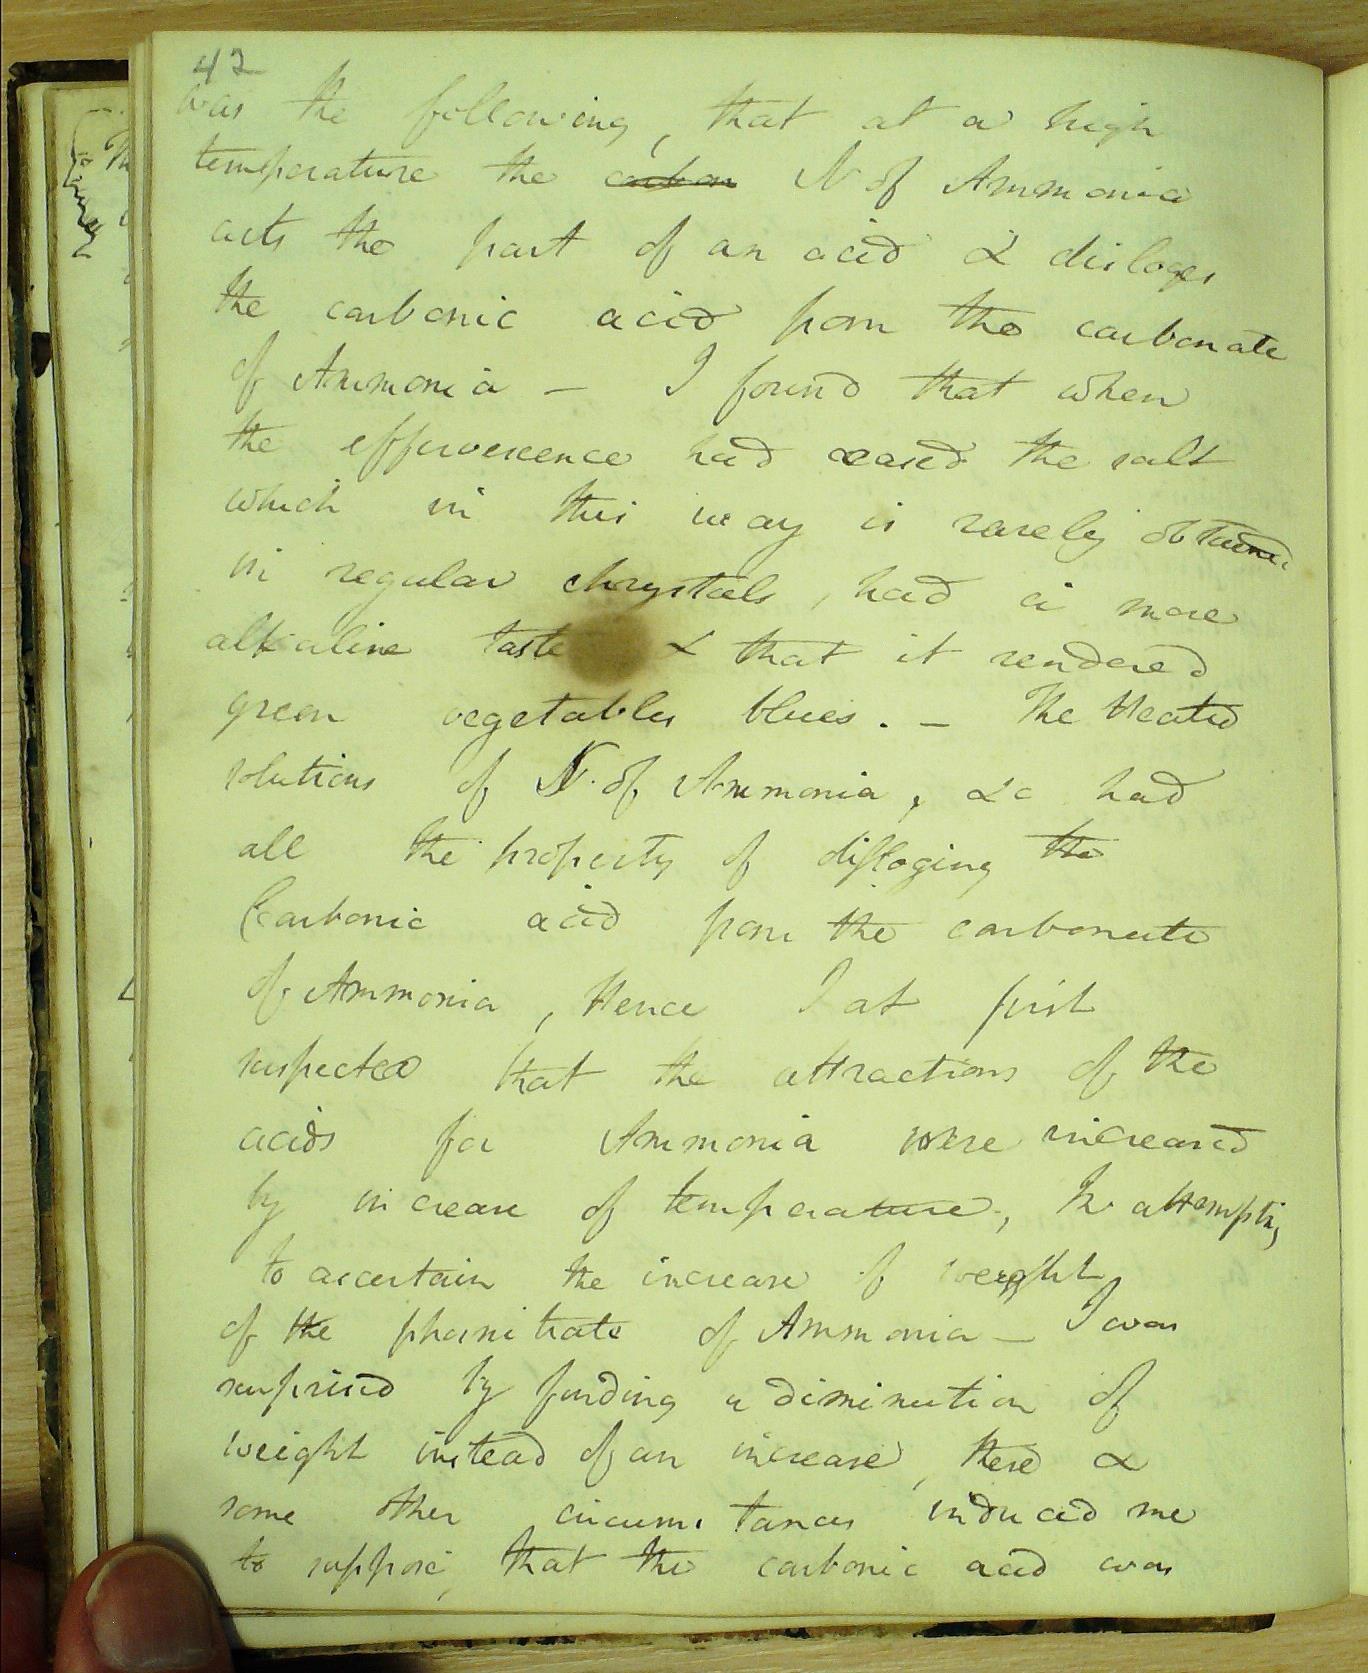 42
was the following, that at a high
temperature the carbon N of Ammonia
acts the part of an acid & disloges
the carbonic acid from the carbonate
of Ammonia – I found that when
the effervescence had ceased the salt
which in this way is rarely obtained
in regular chrystals, had a more
alkaline taste & that it rendered
green vegetables blues. – The Heated
solutions of N. of Ammonia, &c had
all the property of disloging the
Carbonic acid from the carbonate
of Ammonia, Hence I at first
suspected that the attractions of the
acids for Ammonia were increased
by increase of temperature, In attempting
to ascertain the increase of weight
of the phosnitrate of Ammonia – I was
surprised by finding a diminution of
weight instead of an increase, these &
some other circumstances induced me
to suppose, that the carbonic acid was